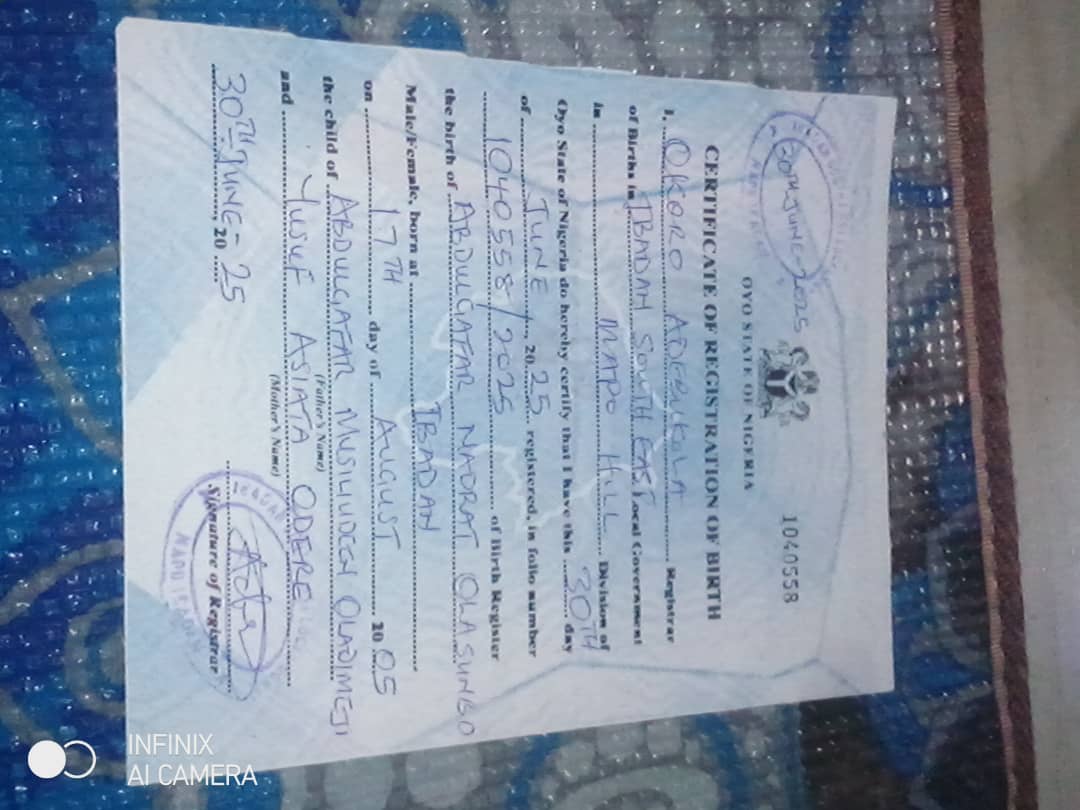 30TH JUNE - 2025
1040558
OYO STATE OF NIGERIA
CERTIFICATE OF REGISTRATION OF BIRTH
I, OKORO ADEBUKOLA Registrar
of Births in IBADAN SOUTH EAST Local Government
in MAPO HILL Division of
Oyo State of Nigeria do hereby certify that I have this 30TH day
of JUNE, 20 25 registered, in folio number
1040558/2025 of Birth Register
the birth of ABDULGAFAR NADRAT OLASUNBO
Male/Female, born at IBADAN
on 17TH day of AUGUST 20 05
the child of ABDULGAFAR MUSILIUDEEN OLADIMEJI
(Father's Name)
and YUSUF ASIATA ODERE
(Mother's Name)
30TH JUNE -, 20 25
Signature of Registrar
IBADAN
INFINIX
AI CAMERA